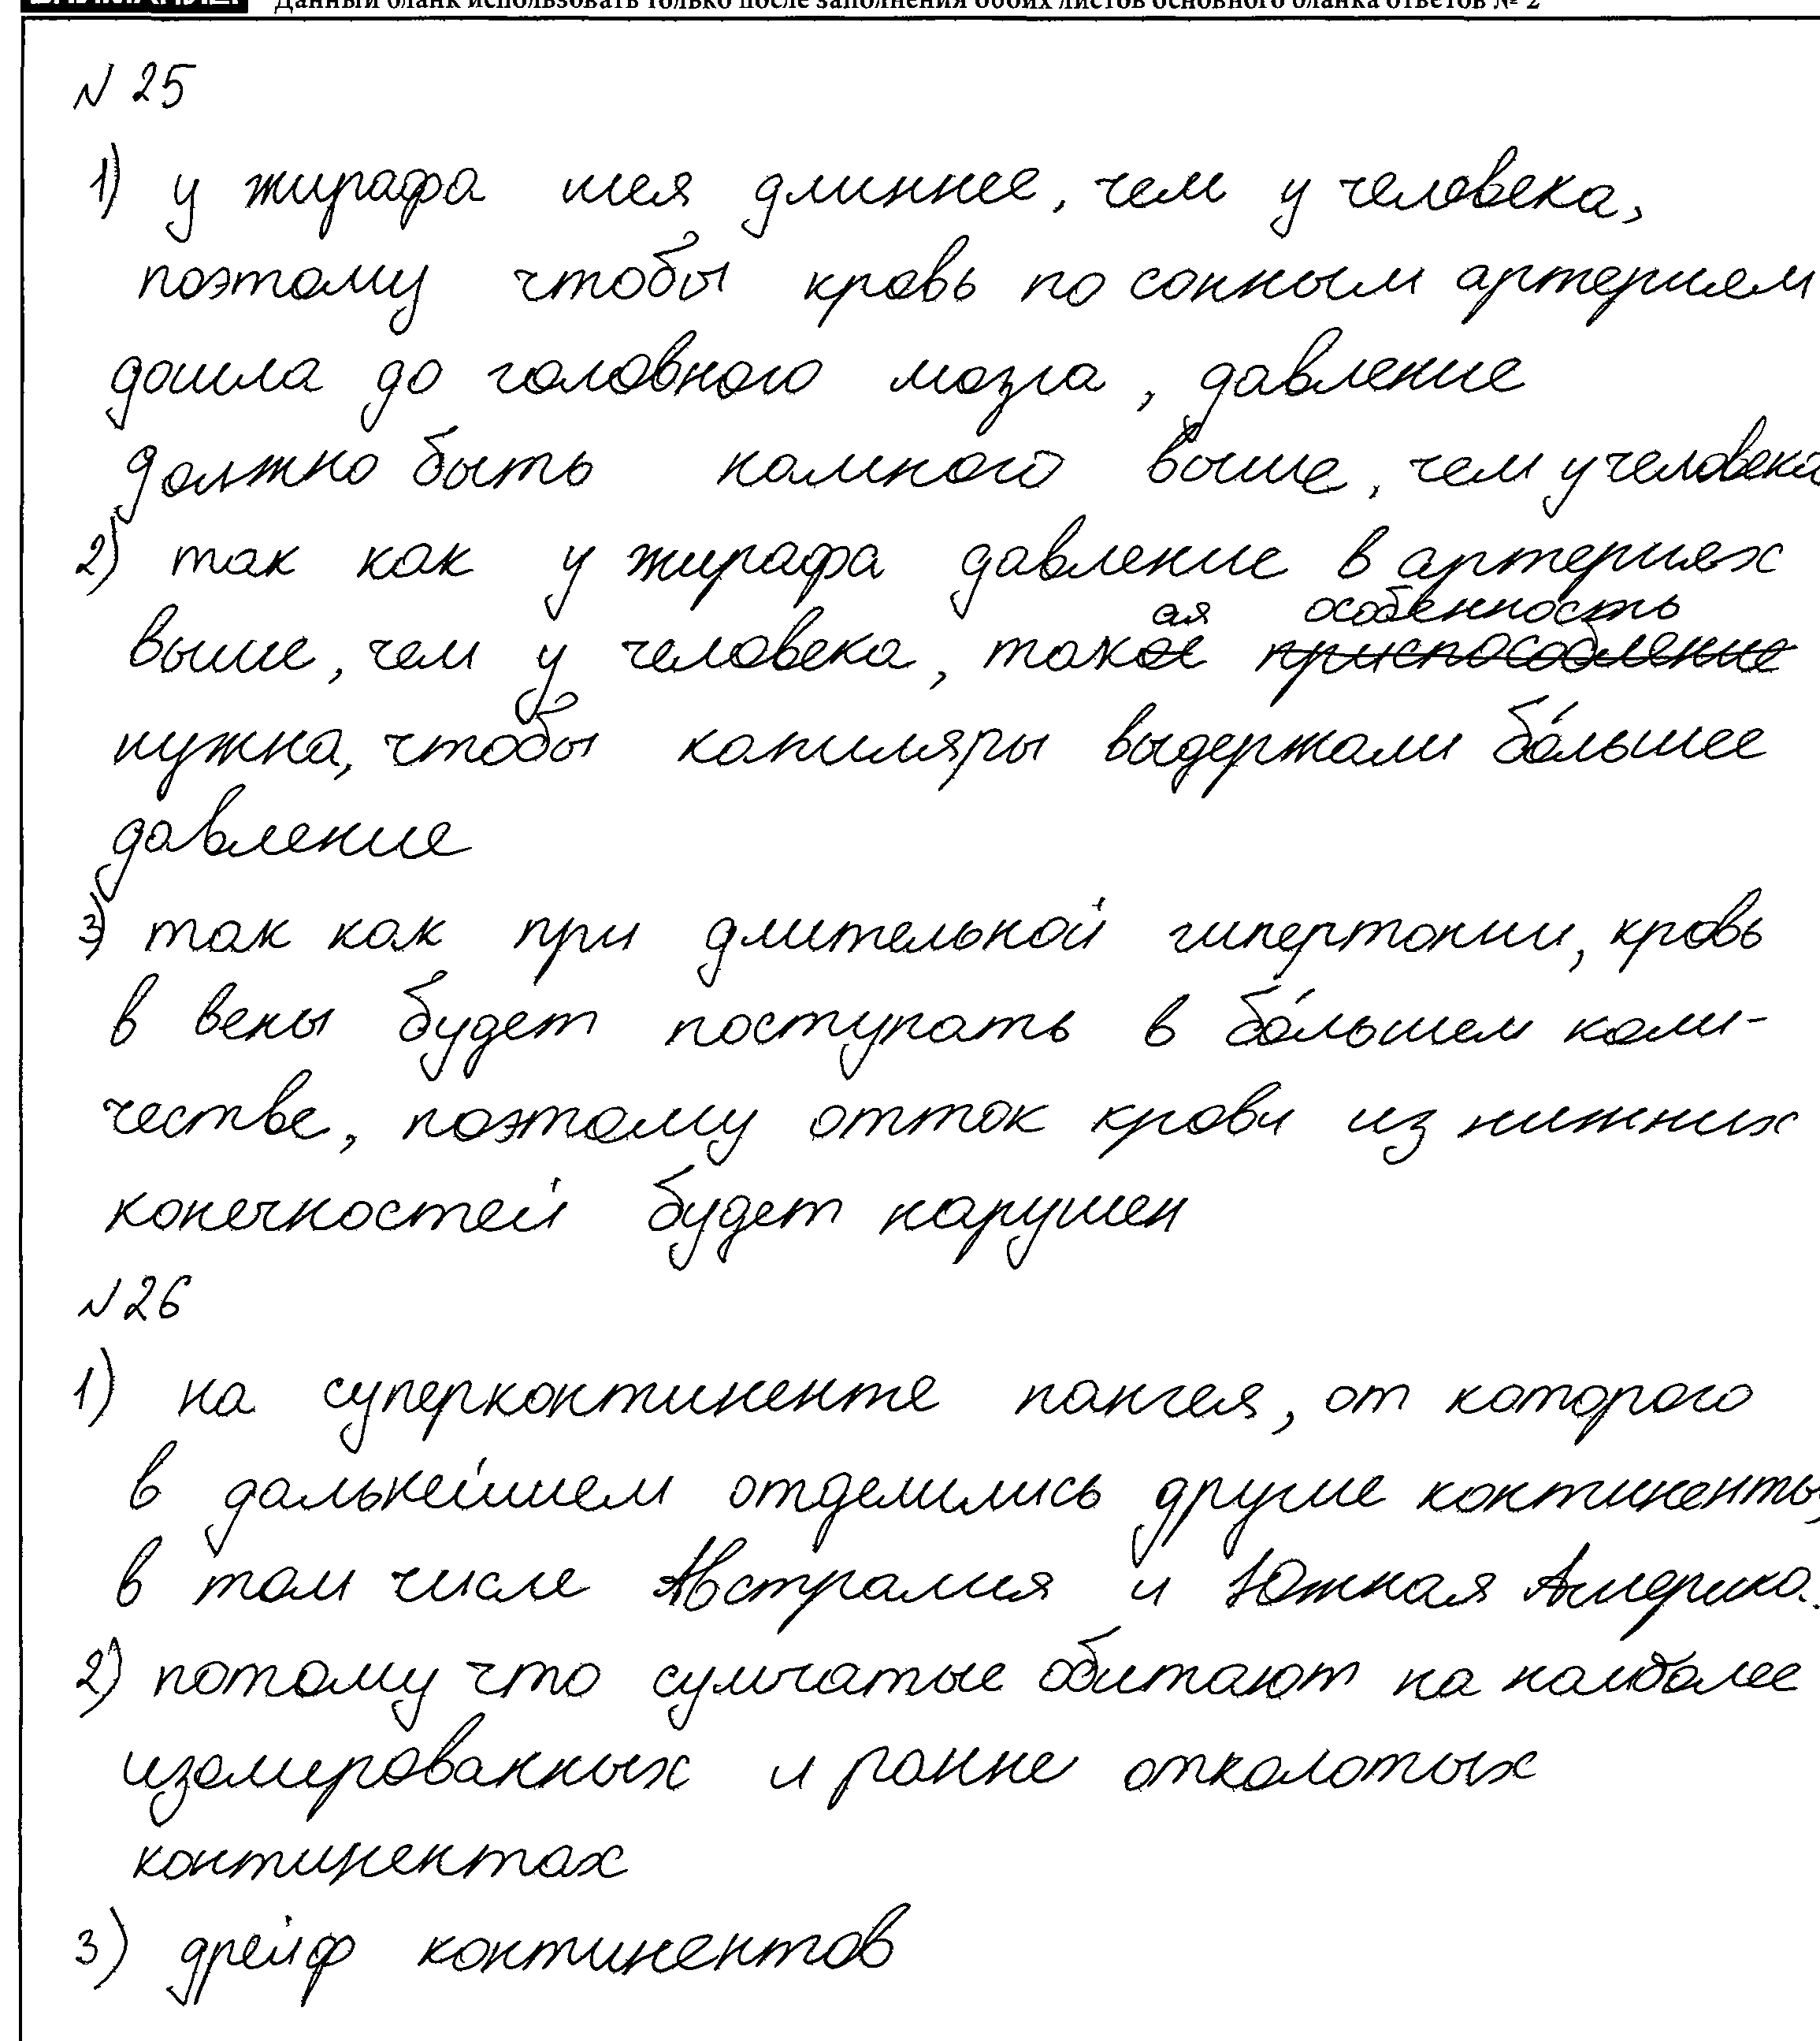 Данный бланк использовать только после заполнения обоих листов основного бланка ответов № 2
№ 25
1) у жирафа шея длиннее, чем у человека,
поэтому чтобы кровь по сонным артериям
дошла до головного мозга, давление
должно быть намного выше, чем у человека
2) так как у жирафа давление в артериях
выше, чем у человека, такая особенность
нужна, чтобы капиляры выдержали бо́льшее
давление
3) так как при длительной гипертонии, кровь
в вены будет поступать в бо́льшем коли-
честве, поэтому отток крови из нижних
конечностей будет нарушен
№ 26
1) на суперконтиненте пангея, от которого
в дальнейшем отделились другие континенты,
в том числе Австралия и Южная Америка.
2) потому что сумчатые обитают на наиболее
изолированных и ранне отколотых
континентах
3) дрейф континентов